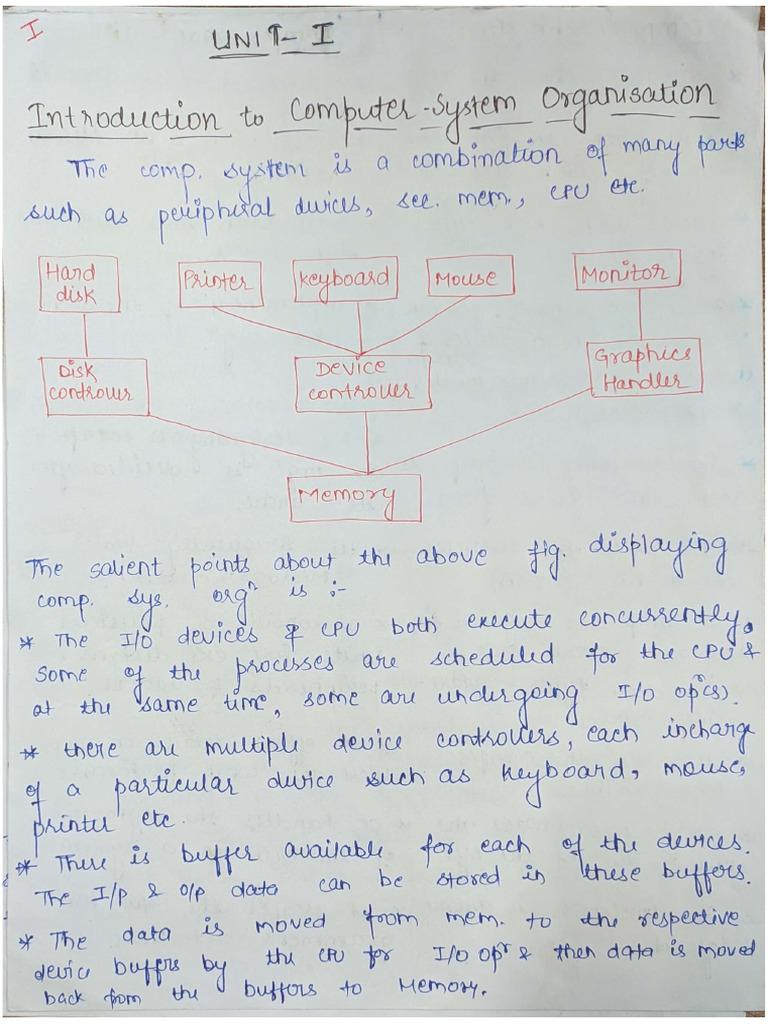 I
UNIT-I
Introduction to Computer-System Organisation
The comp. system is a combination of many parts
such as peripheral devices, sec. mem., CPU etc.
Hard disk
Printer
Keyboard
Mouse
Monitor
Disk controller
Device controller
Graphics Handler
Memory
The salient points about the above fig. displaying
comp. sys. orgⁿ is :-
* The I/O devices & CPU both execute concurrently.
Some of the processes are scheduled for the CPU &
at the same time, some are undergoing I/O opʳ(s).
* there are multiple device controllers, each incharge
of a particular device such as keyboard, mouse,
printer etc.
* There is buffer available for each of the devices.
The I/P & O/P data can be stored in these buffers.
* The data is moved from mem. to the respective
device buffers by the CPU for I/O opʳ & then data is moved
back from the buffers to Memory.